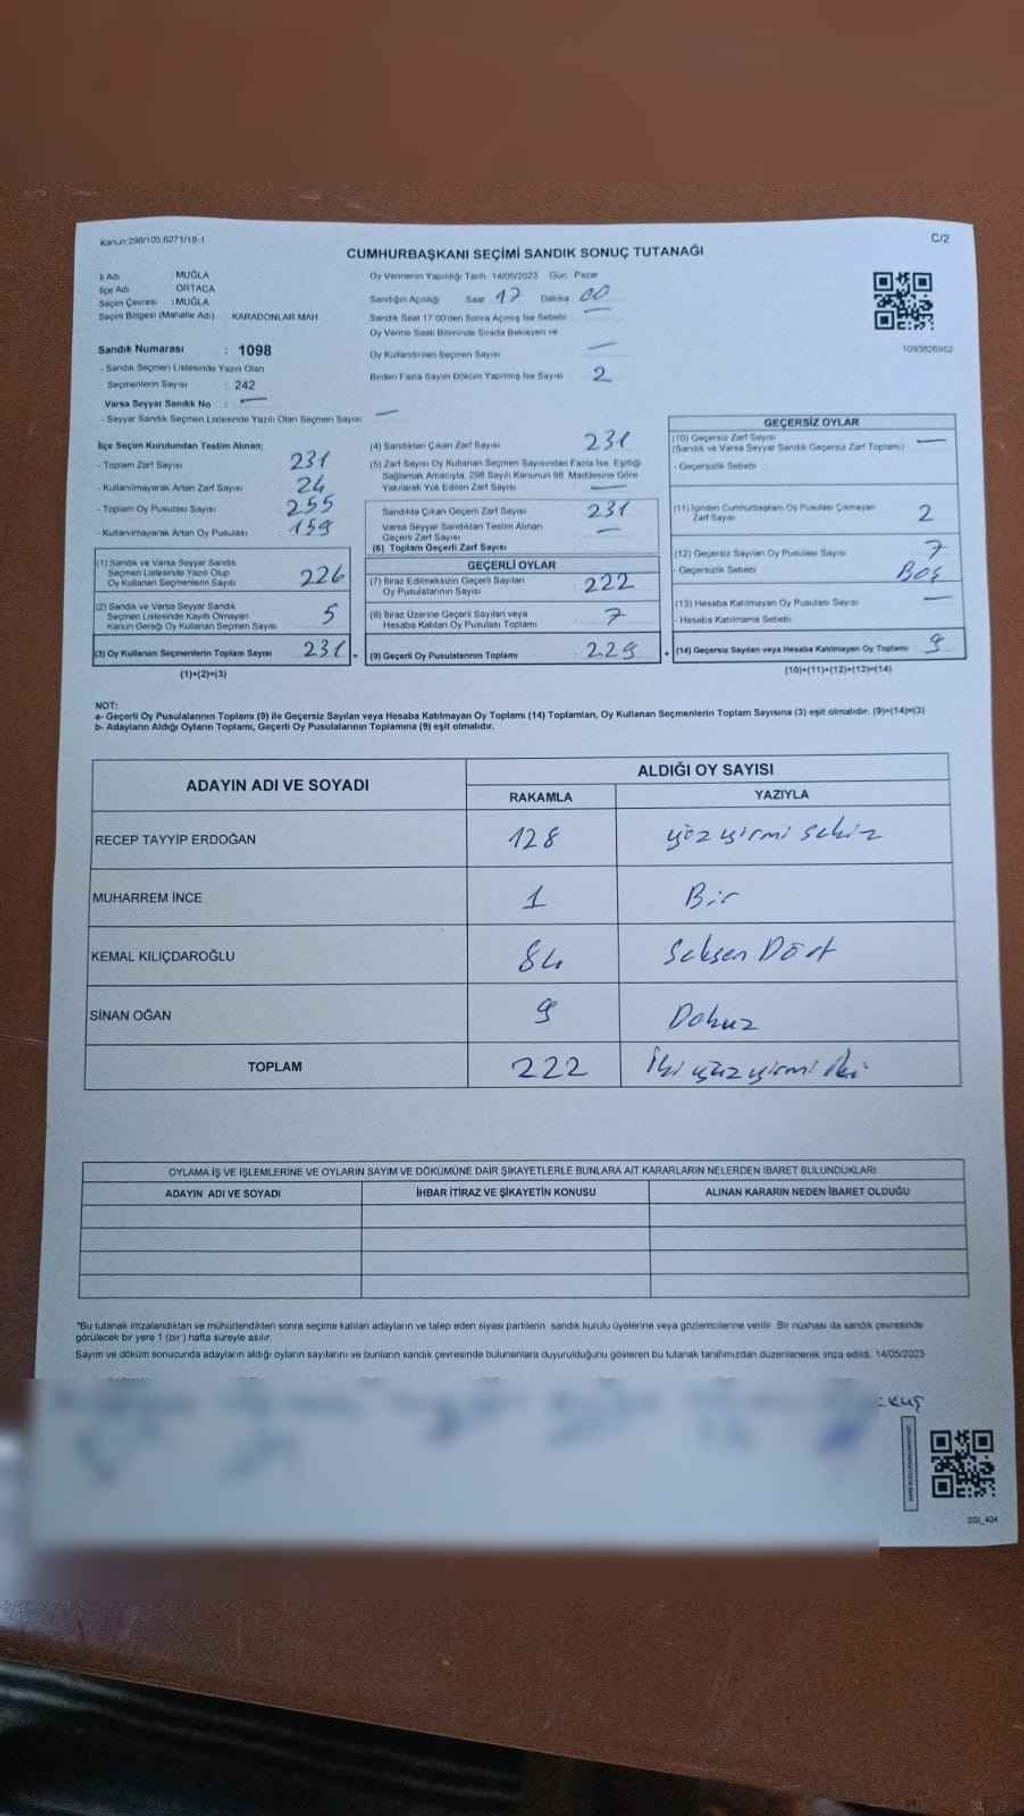 Kanun:298/105;6271/18-1
C/2
CUMHURBAŞKANI SEÇİMİ SANDIK SONUÇ TUTANAĞI
İl Adı : MUĞLA
İlçe Adı : ORTACA
Seçim Çevresi : MUĞLA
Seçim Bölgesi (Mahalle Adı) KARADONLAR MAH.
Sandık Numarası : 1098
- Sandık Seçmen Listesinde Yazılı Olan
Seçmenlerin Sayısı : 242
Varsa Seyyar Sandık No : —
- Seyyar Sandık Seçmen Listesinde Yazılı Olan Seçmen Sayısı —
Oy Vermenin Yapıldığı Tarih 14/05/2023 Gün Pazar
Sandığın Açıldığı Saat 17 Dakika 00
Sandık Saat 17:00'den Sonra Açılmış İse Sebebi —
Oy Verme Saati Bitiminde Sırada Bekleyen ve
Oy Kullandırılan Seçmen Sayısı —
Birden Fazla Sayım Döküm Yapılmış İse Sayısı 2
1093826952
İlçe Seçim Kurulundan Teslim Alınan;
- Toplam Zarf Sayısı 231
- Kullanılmayarak Artan Zarf Sayısı 24
- Toplam Oy Pusulası Sayısı 255
- Kullanılmayarak Artan Oy Pusulası 159
(1) Sandık ve Varsa Seyyar Sandık
Seçmen Listesinde Yazılı Olup
Oy Kullanan Seçmenlerin Sayısı 226
(2) Sandık ve Varsa Seyyar Sandık
Seçmen Listesinde Kayıtlı Olmayan
Kanun Gereği Oy Kullanan Seçmen Sayısı 5
(3) Oy Kullanan Seçmenlerin Toplam Sayısı 231
(1)+(2)=(3)
(4) Sandıktan Çıkan Zarf Sayısı 231
(5) Zarf Sayısı Oy Kullanan Seçmen Sayısından Fazla İse, Eşitliği
Sağlamak Amacıyla, 298 Sayılı Kanunun 98. Maddesine Göre
Yakılarak Yok Edilen Zarf Sayısı —
Sandıkta Çıkan Geçerli Zarf Sayısı 231
Varsa Seyyar Sandıktan Teslim Alınan
Geçerli Zarf Sayısı —
(6) Toplam Geçerli Zarf Sayısı
GEÇERLİ OYLAR
(7) İtiraz Edilmeksizin Geçerli Sayılan
Oy Pusulalarının Sayısı 222
(8) İtiraz Üzerine Geçerli Sayılan veya
Hesaba Katılan Oy Pusulası Toplamı 7
(9) Geçerli Oy Pusulalarının Toplamı 229
GEÇERSİZ OYLAR
(10) Geçersiz Zarf Sayısı —
(Sandık ve Varsa Seyyar Sandık Geçersiz Zarf Toplamı)
- Geçersizlik Sebebi
(11) İçinden Cumhurbaşkanı Oy Pusulası Çıkmayan
Zarf Sayısı 2
(12) Geçersiz Sayılan Oy Pusulası Sayısı 7
- Geçersizlik Sebebi Boş
(13) Hesaba Katılmayan Oy Pusulası Sayısı —
- Hesaba Katılmama Sebebi
(14) Geçersiz Sayılan veya Hesaba Katılmayan Oy Toplamı 9
(10)+(11)+(12)+(13)=(14)
NOT:
a- Geçerli Oy Pusulalarının Toplamı (9) ile Geçersiz Sayılan veya Hesaba Katılmayan Oy Toplamı (14) Toplamları, Oy Kullanan Seçmenlerin Toplam Sayısına (3) eşit olmalıdır. (9)+(14)=(3)
b- Adayların Aldığı Oyların Toplamı, Geçerli Oy Pusulalarının Toplamına (9) eşit olmalıdır.
ADAYIN ADI VE SOYADI ALDIĞI OY SAYISI
RAKAMLA YAZIYLA
RECEP TAYYİP ERDOĞAN 128 yüz yirmi sekiz
MUHARREM İNCE 1 Bir
KEMAL KILIÇDAROĞLU 84 Seksen Dört
SİNAN OĞAN 9 Dokuz
TOPLAM 222 İki yüz yirmi iki
OYLAMA İŞ VE İŞLEMLERİNE VE OYLARIN SAYIM VE DÖKÜMÜNE DAİR ŞİKAYETLERLE BUNLARA AİT KARARLARIN NELERDEN İBARET BULUNDUKLARI
ADAYIN ADI VE SOYADI İHBAR İTİRAZ VE ŞİKAYETİN KONUSU ALINAN KARARIN NEDEN İBARET OLDUĞU
*Bu tutanak imzalandıktan ve mühürlendikten sonra seçime katılan adayların ve talep eden siyasi partilerin sandık kurulu üyelerine veya gözlemcilerine verilir. Bir nüshası da sandık çevresinde
görülecek bir yere 1 (bir) hafta süreyle asılır.
Sayım ve döküm sonucunda adayların aldığı oyların sayılarını ve bunların sandık çevresinde bulunanlara duyurulduğunu gösteren bu tutanak tarafımızdan düzenlenerek imza edildi. 14/05/2023